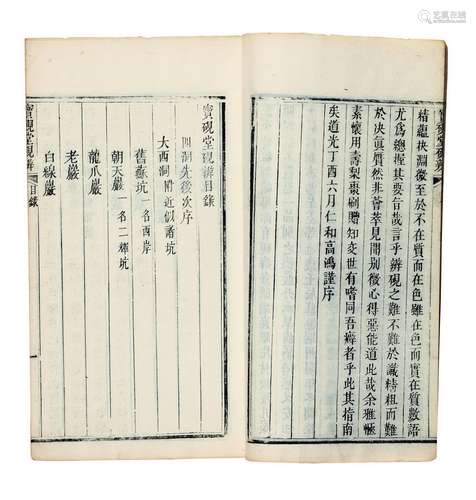 精蘊抉淵微至於不在質而在色難在色而實在質數語
尤爲總握其要旨哉言乎辨硯之難不難於識精粗而難
於决眞贋然非薈萃見聞別微心得惡能道此哉余雅愜
素懷用壽梨棗刷贈知交世有嗜同吾癖者乎此其指南
矣道光丁酉六月仁和高鴻謹序
寶硯堂硯辨目錄
四洞先後次序
大西洞附近似諸坑
舊蘇坑 一名西岸
朝天巖 一名二輝坑
龍爪巖
老巖
白線巖
寶硯堂硯辨 目錄 一